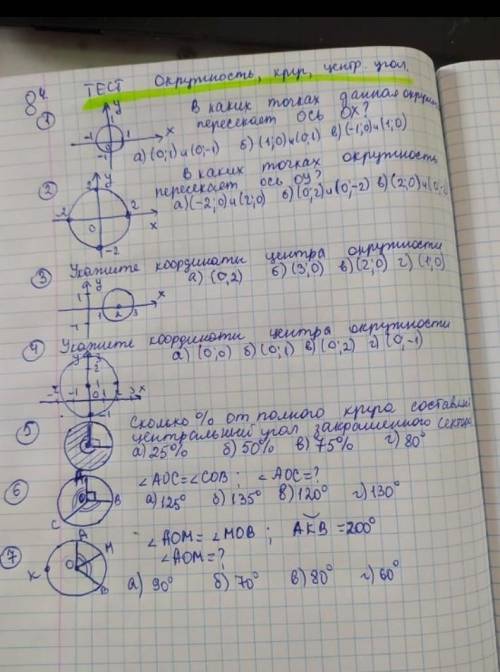 8ч ТЕСТ Окружность, круг, центр. угол.
① В каких точках данная окружн
пересекает ось OX?
а) (0;1) и (0;-1) б) (1;0) и (0;1) в) (-1;0) и (1;0)
y
x
-1
1
-1
② В каких точках окружность
пересекает ось OY?
а) (-2;0) и (2;0) б) (0;2) и (0;-2) в) (2;0) и
y
2
-2
0
2
x
-2
③ Укажите координаты центра окружности
а) (0,2) б) (3;0) в) (2;0) г) (1,0)
y
1
1
2
3
x
-1
④ Укажите координаты центра окружности
а) (0;0) б) (0;1) в) (0;2) г) (0,-1)
⑤ Сколько % от полного круга составля
центральный угол закрашенного сектора
а) 25% б) 50% в) 75% г) 80°
⑥ ∠AOC=∠COB; ∠AOC=?
а) 125° б) 135° в) 120° г) 130°
A
B
C
⑦ ∠AOM=∠MOB; AKB=200°
∠AOM=?
а) 90° б) 70° в) 80° г) 60°
A
M
K
O
B